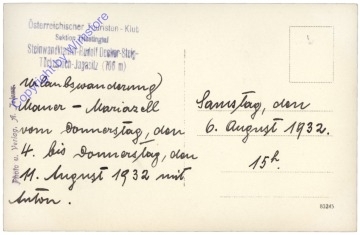 Österreichischer Touristen-Klub
Sektion
Steinwandklamm Rudolf Decker-Steig
Jagasitz (786 m)
copyright by Winstore
Urlaubswanderung
Mauer - Mariazell
vom Donnerstag, den
4. bis Donnerstag, den
11. August 1932 mit
Anton.
Samstag, den
6. August 1932.
15h.
Photo u. Verlag
83245